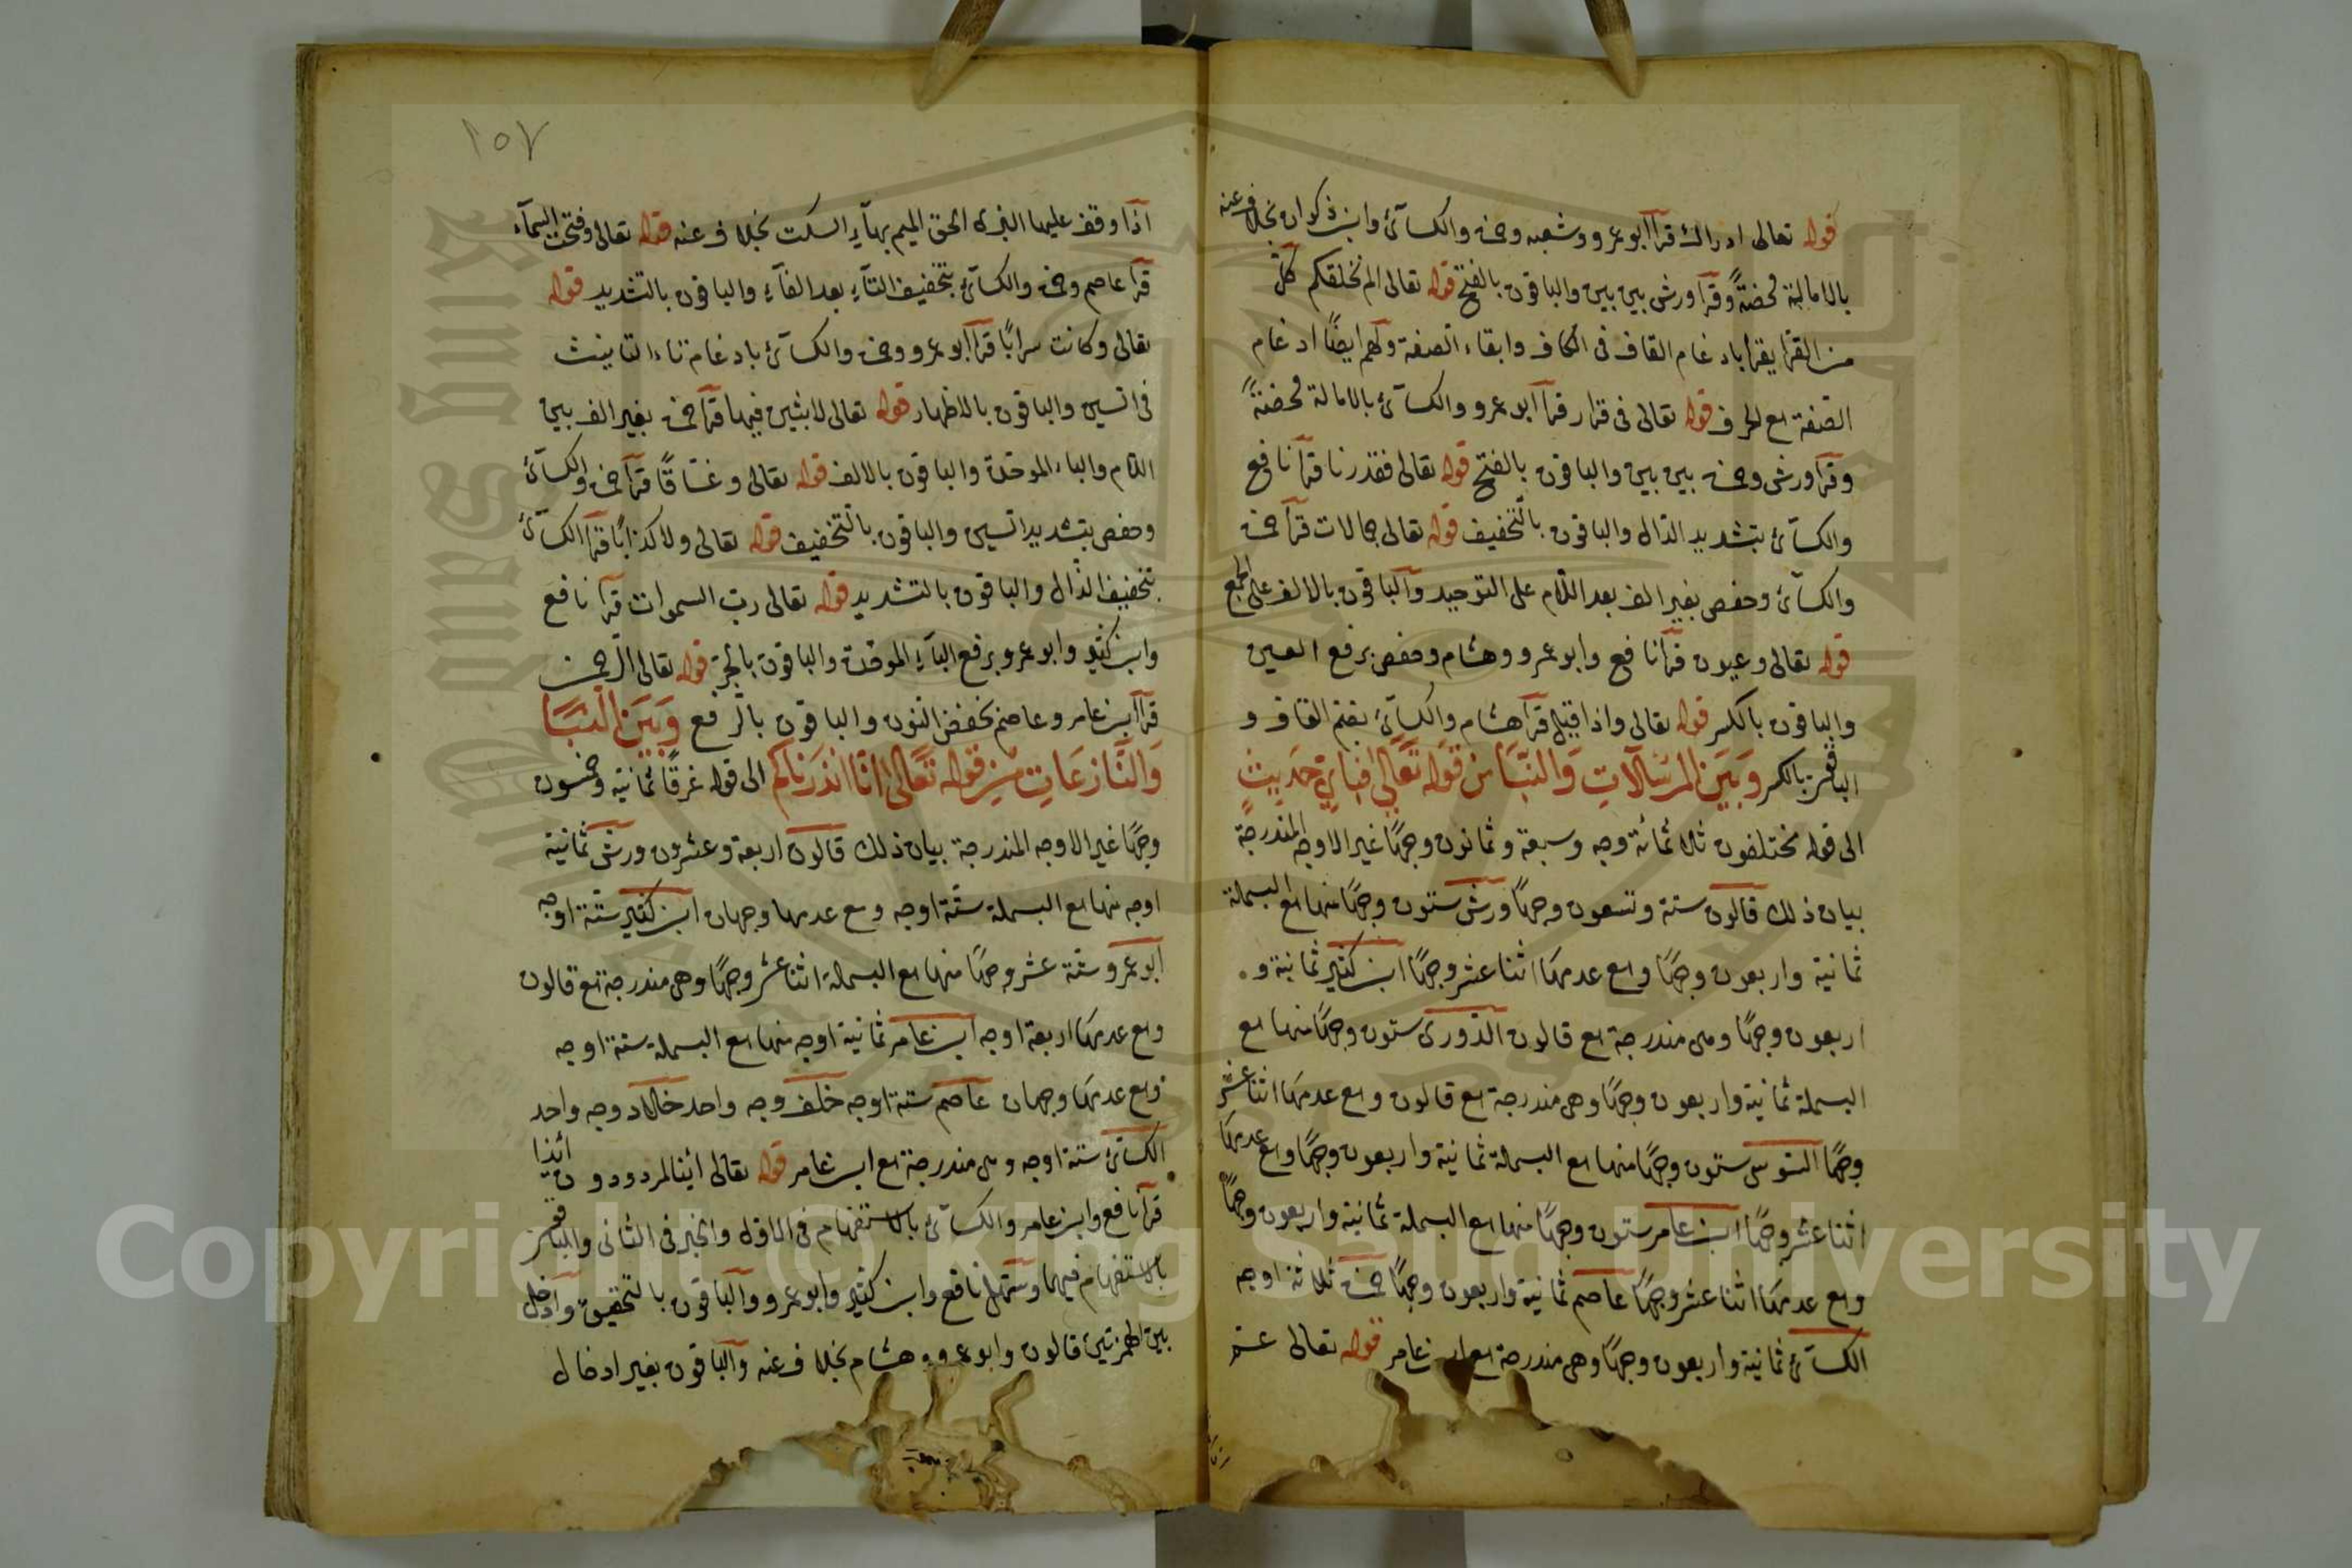 قوله تعالى ادراك قرآ ابو عمرو وشعبه وحمزه والكسآئ وابن ذكوان بخلاف عنه
بالامالة محضةً وقرآ ورش بين بين والباقون بالفتح قوله تعالى الم نخلقكم كلّ
من القرا يقرا بادغام القاف فى الكاف وابقاء الصفة ولهم ايضًا ادغام
الصفة مع الحرف قوله تعالى فى قرار قرآ ابو عمرو والكسآئ بالامالة محضةً
وقرآ ورش وحمزه بين بين والباقون بالفتح قوله تعالى فقدرنا قرآ نافع
والكسآئ بتشديد الدّال والباقون بالتّخفيف قوله تعالى جمالات قرآ حمزه
والكسآئ وحفص بغير الف بعد اللّام على التوحيد والباقون بالالف على الجمع
قوله تعالى وعيون قرآ نافع وابو عمرو وهشام وحفص برفع العين
والباقون بالكسر قوله تعالى واذا قيل قرآ هشام والكسآئ بضم القاف و
الباقون بالكسر وَبَيَن المرسَلاَتِ وَالنّبَا مِن قَولهِ تَعَالى فبِاَيّ حَدِيثٍ
الى قوله مختلفون ثلاثمائة وجه وسبعة وثمانون وجهًا غير الاوجه المندرجة
بيان ذلك قالون ستة وتسعون وجهًا ورش ستون وجهًا منها مع البسملة
ثمانية واربعون وجهًا ومع عدمها اثنا عشر وجهًا ابن كثير ثمانية و
اربعون وجهًا وهى مندرجة مع قالون الدّورى ستون وجهًا منها مع
البسملة ثمانية واربعون وجهًا وهى مندرجة مع قالون ومع عدمها اثنا عشر
وجهًا السّوسى ستون وجهًا منها مع البسملة ثمانية واربعون وجهًا ومع عدمها
اثنا عشر وجهًا ابن عامر ستون وجهًا منها مع البسملة ثمانية واربعون وجهًا
ومع عدمها اثنا عشر وجهًا عاصم ثمانية واربعون وجهًا حمزه ثلاثة اوجه
الكسآئ ثمانية واربعون وجهًا وهى مندرجة مع ابن عامر قوله تعالى عم
١٥٧
اذا وقف عليها البزى الحق الميم بهآءِ السكت بخلاف عنه قوله تعالى وفتحت السمآء
قرآ عاصم وحمزه والكسآئ بتخفيف التآءِ بعد الفآءِ والباقون بالتشديد قوله
تعالى وكانت سرابًا قرآ ابو عمرو وحمزه والكسآئ بادغام تاء التانيث
فى السين والباقون بالاظهار قوله تعالى لابثين فيها قرآ حمزه بغير الف بين
اللام والباء الموحّدة والباقون بالالف قوله تعالى وغسّاقًا قرآ حمزه والكسآئ
وحفص بتشديد السين والباقون بالتّخفيف قوله تعالى ولا كذابًا قرآ الكسآئ
بتخفيف الذّال والباقون بالتشديد قوله تعالى ربّ السموات قرآ نافع
وابن كثير وابو عمرو برفع البآءِ الموحّدة والباقون بالجرّ قوله تعالى الرّحمن
قرآ ابن عامر وعاصم بخفض النون والباقون بالرّفع وَبَيَن النّبَا
وَالنّازعَاتِ مِن قولهِ تَعَالى اِنّا انذَرنَاكُم الى قوله غرقًا ثمانية وخمسون
وجهًا غير الاوجه المندرجة بيان ذلك قالون اربعة وعشرون ورش ثمانية
اوجه منها مع البسملة ستّة اوجه ومع عدمها وجهان ابن كثير ستة اوجه
ابو عمرو ستة عشر وجهًا منها مع البسملة اثنا عشر وجهًا وهى مندرجة مع قالون
ومع عدمها اربعة اوجه ابن عامر ثمانية اوجه منها مع البسملة ستة اوجه
ومع عدمها وجهان عاصم ستة اوجه خلف وجه واحد خلاد وجه واحد
الكسآئ ستة اوجه وهى مندرجة مع ابن عامر قوله تعالى ائنا لمردودون ائذا
قرآ نافع وابن عامر والكسآئ بالاستفهام فى الاوّل والخبر فى الثانى والباقون
بالاستفهام فيهما وسَهّل نافع وابن كثير وابو عمرو والباقون بالتحقيق وادخل
بين الهمزتين قالون وابو عمرو وهشام بخلاف عنه والباقون بغير ادخال
Copyright © King Saud University